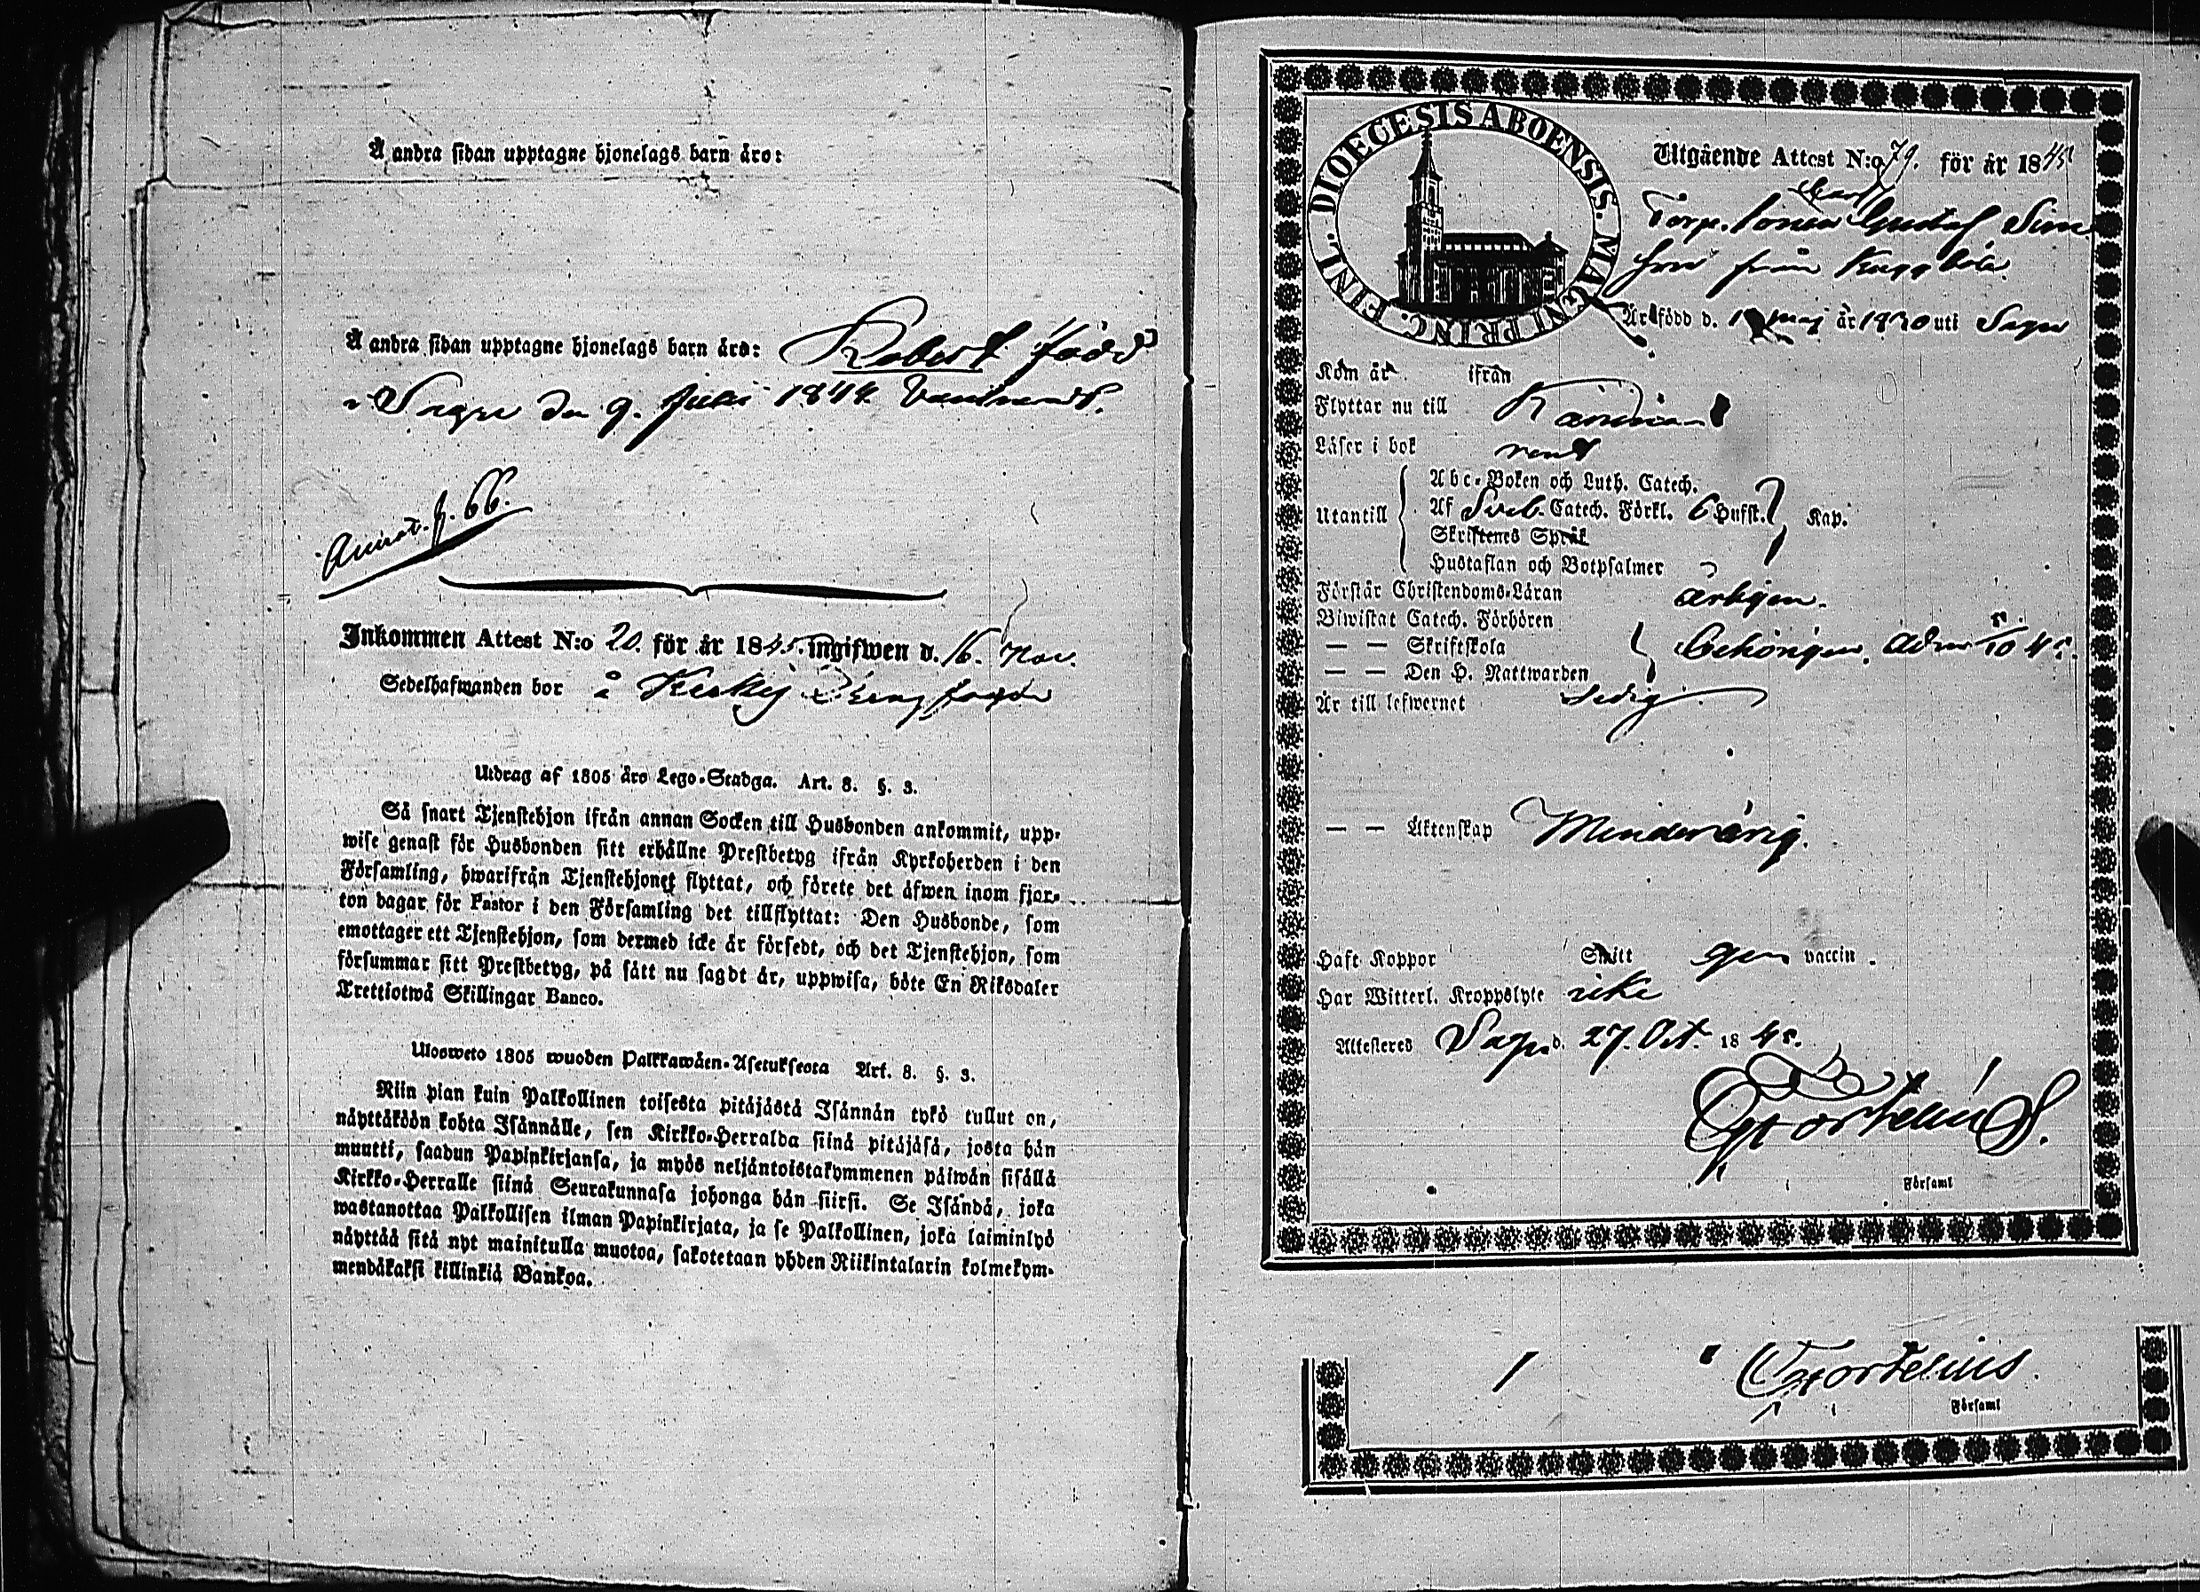 Å andra sidan upptagne hjonelags barn äro:
Å andra sidan upptagne hjonelags barn äro: Robert född
i Sagu den 9. Julii 1844
Annot. p. 66.
Inkommen Attest N:o 20. för år 1845. ingifwen d. 16. Nov.
Sedelhafwanden bor å
Utdrag af 1805 års Lego-Stadga. Art. 8. §. 3.
Så snart Tjenstehjon ifrån annan Socken till Husbonden ankommit, upp-
wise genast för Husbonden sitt erhållne Prestbetyg ifrån Kyrkoherden i den
Församling, hwarifrån Tjenstehjonet flyttat, och förete det äfwen inom fjor-
ton dagar för Pastor i den Församling det tillflyttat: Den Husbonde, som
emottager ett Tjenstehjon, som dermed icke är försedt, och det Tjenstehjon, som
försummar sitt Prestbetyg, på sätt nu sagdt är, uppwisa, böte En Riksdaler
Trettiotwå Skillingar Banco.
Ulosweto 1805 wuoden Palkkawäen-Asetuksesta Art. 8. §. 3.
Niin pian kuin Palkollinen toisesta pitäjästä Isännän tykö tullut on,
näyttäköön kohta Isännälle, sen Kirkko-Herralda siinä pitäjäsä, josta hän
muutti, saadun Papinkirjansa, ja myös neljäntoistakymmenen päiwän sisällä
Kirkko-Herralle siinä Seurakunnasa johonga hän siirsi. Se Isändä, joka
wastanottaa Palkollisen ilman Papinkirjata, ja se Palkollinen, joka laiminlyö
näyttää sitä nyt mainitulla muotoa, sakotetaan yhden Riikintalarin kolmekym-
mendäkaksi killinkiä Bankoa.
DIOECESIS ABOENSIS. MAGNI PRINC. FINL.
Utgående Attest N:o 79. för år 1845
Carl
Torp. sonen Gustaf Sim
son från Kuggböle
Är född d. 1 maj år 1830 uti Sagu
Kom år ifrån
Flyttar nu till Karuna
Läser i bok rent
Abc-Boken och Luth. Catech.
Utantill Af Sveb. Catech. Förkl. 6 Hufst. Kap.
Skriftenes Språk
Hustaflan och Botpsalmer
Förstår Christendoms-Läran ärligen.
Biwistat Catech. Förhören
— — Skriftskola behörigen. adm. 5/10 45.
— — Den H. Nattwarden
Är till lefwernet sedig
— — Äktenskap Minderårig.
Haft Koppor Smitt gen vaccin.
Har Witterl. Kroppslyte icke
Attesteres Sagu d. 27. Oct. 1845.
Församl
Församl